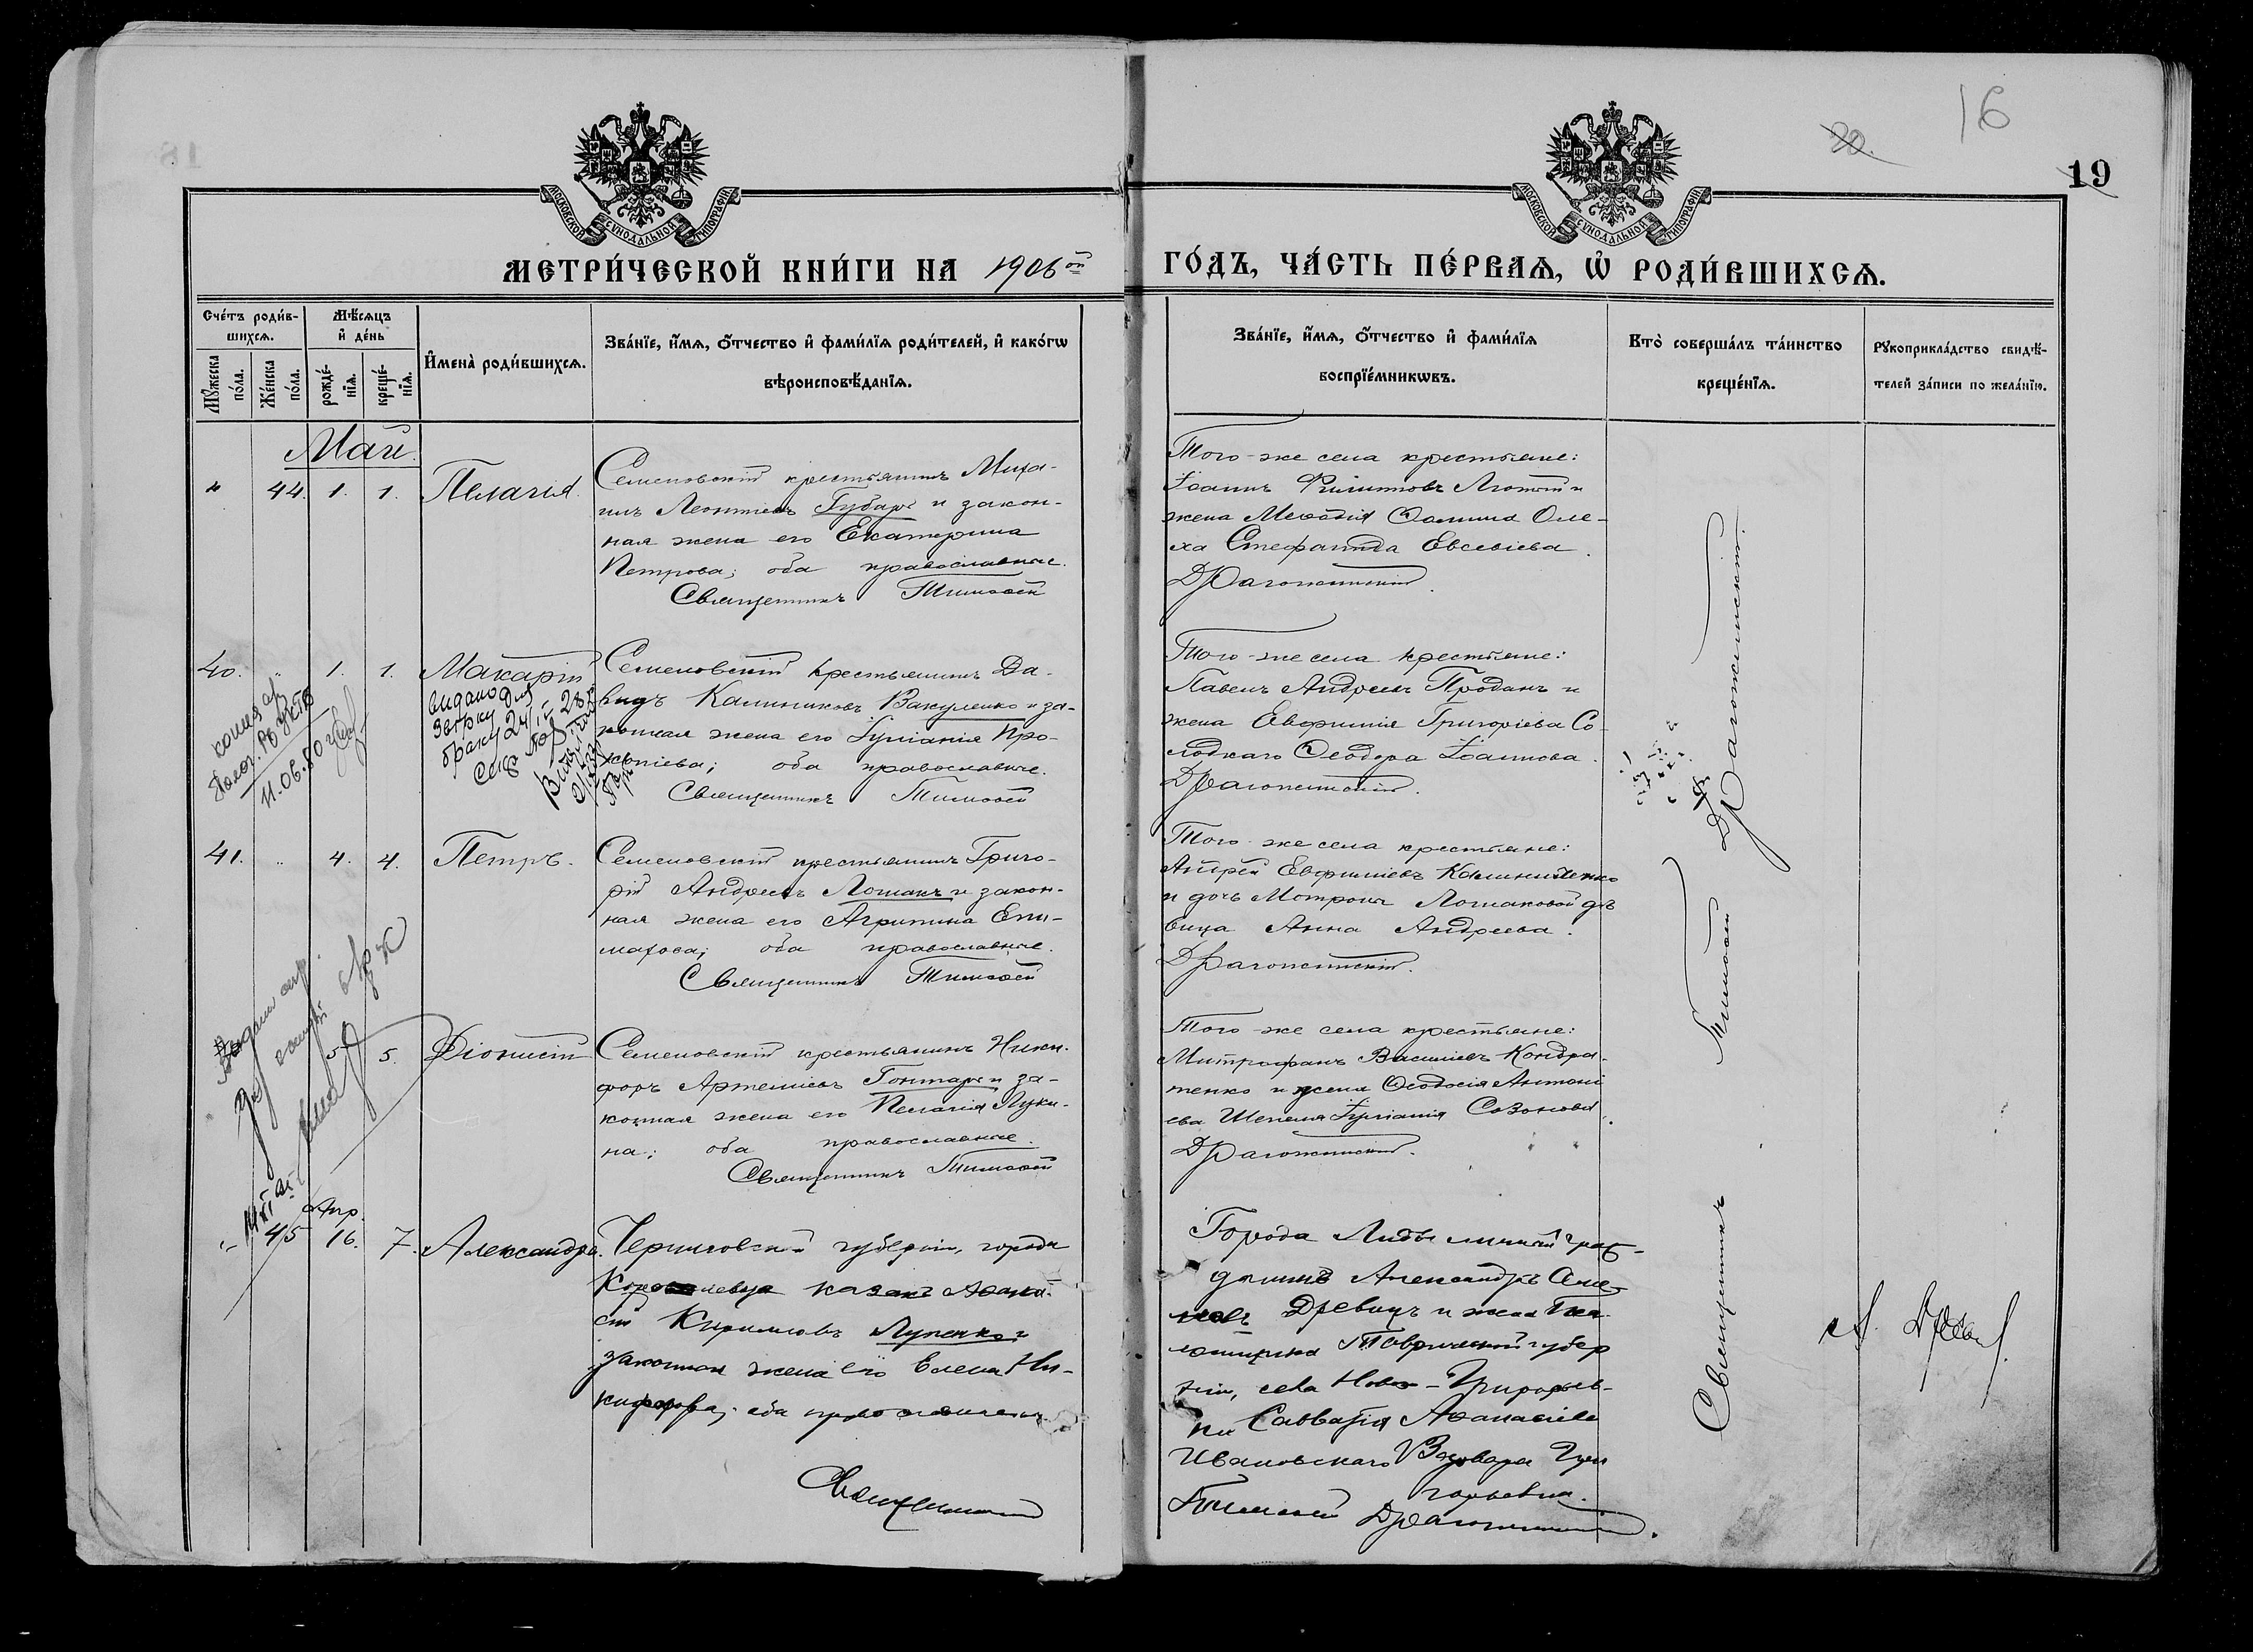 16
20.
19
МОСКОВСКОЙ СѴНОДАЛЬНОЙ ТИПОГРАФІИ
МОСКОВСКОЙ СѴНОДАЛЬНОЙ ТИПОГРАФІИ
МЕТРИ́ЧЕСКОЙ КНИ́ГИ НА 1906ой ГО́ДЪ, ЧА́СТЬ ПЕ́РВАѦ, Ѡ РОДИ́ВШИХСѦ.
Сче́тъ роди́в-
шихсѧ.
Мѣ́сѧцъ
и де́нь
Мꙋ́жеска
по́ла.
Же́нска
по́ла.
рожде́-
нїѧ.
креще́-
нїѧ.
Имена̀ роди́вшихсѧ.
Зва́нїе, и́мѧ, о́тчество и фами́лїѧ роди́телей, и како́гѡ
вѣроисповѣ́данїѧ.
Зва́нїе, и́мѧ, о́тчество и фами́лїѧ
воспрїе́мникѡвъ.
Кто̀ соверша́лъ та́инство
креще́нїѧ.
Рꙋкоприкла́дство свидѣ́-
телей за́писи по жела́нїю.
Май.
" 44. 1. 1. Пелагія.
Семеновскій крестьянинъ Миха-
илъ Леонтіевъ Губарь и закон-
ная жена его Екатерина
Петрова; оба православные.
Священникъ Тимоѳей
Того-же села крестьяне:
Іоаннъ Филипповъ Лютый и
жена
Стефанида Евсевіева.
Драгожинскій.
40. " 1. 1. Макарій
Семеновскій крестьянинъ Да-
видъ Калиниковъ Вакуленко и за-
конная жена его Іуліанія Про-
копіева; оба православные.
Священникъ Тимоѳей
11.06.50
Того-же села крестьяне:
Павелъ Андреевъ Проданъ и
жена Евфимія Григоріева Со-
лодкаго Ѳеодора Іоаннова.
Драгожинскій.
41. " 4. 4. Петръ.
Семеновскій крестьянинъ Григо-
рій Андреевъ Лошакъ и закон-
ная жена его Агрипина Епи-
махова; оба православные.
Священникъ Тимоѳей
Того-же села крестьяне:
Андрей Евфиміевъ Калиниченко
и дочь Мотроны Лошаковой дѣ
вица Анна Андреева.
Драгожинскій.
5. 5. Діонисій
Семеновскій крестьянинъ Ники-
форъ Артеміевъ Гонтарь и за-
конная жена его Пелагія Луки-
на; оба православные.
Священникъ Тимоѳей
Того-же села крестьяне:
Митрофанъ Василіевъ Кондра-
тенко и жена Ѳеодосія Антоні
ева Шепеля Іуліанія Созонова.
Драгожинскій.
Апр.
" 45 16. 7. Александра.
Черниговской губерніи, города
казакъ Аѳана-
сій Кирилловъ Луценко и
законная жена его Елена Ни-
кифорова; оба православные.
Священникъ
Города Лиды личный граж-
данинъ Александръ
Древицъ и жена
Таврической губер
ніи, села Ново-Григорьев-
ки Савватія Аѳанасіева
Ивановскаго Варвара Гри
горьевна.
Тимоѳей Драгожинскій.
Священникъ Тимоѳей Драгожинскій.